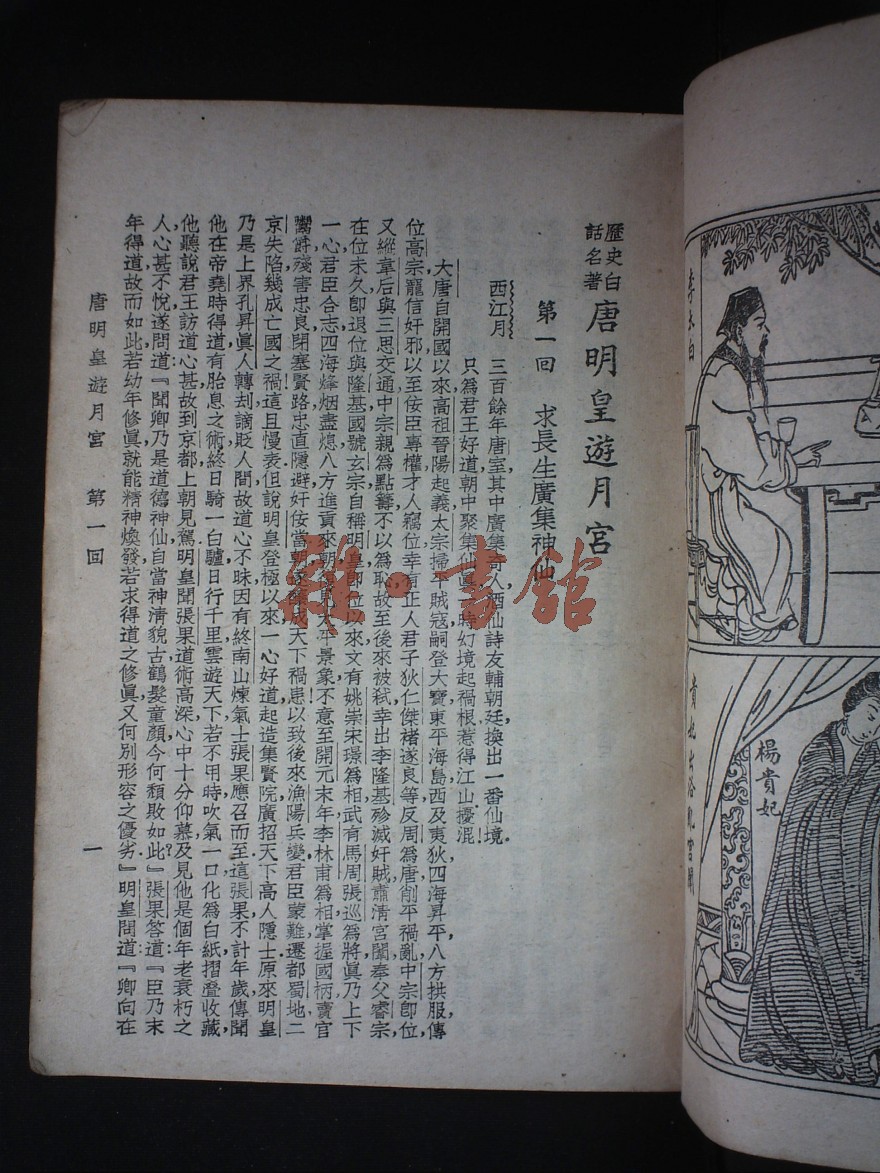 李太白
楊貴妃
歷史白
話名著
唐明皇遊月宮
第一回 求長生廣集神仙
西江月 三百餘年唐室其中廣集奇人酒仙詩友輔朝廷換出一番仙境
只爲君王好道朝中聚集仙眞時幻境起禍根惹得江山擾混
大唐自開國以來高祖晉陽起義太宗掃平賊寇嗣登大寶東平海島西及夷狄四海昇平八方拱服傳
位高宗寵信奸邪以至佞臣專權才人竊位幸有正人君子狄仁傑褚遂良等反周爲唐削平禍亂中宗卽位
又縱韋后與三思交通中宗親爲點籌不以爲恥故至後來被弒幸出李隆基殄滅奸賊肅清宮闈奉父睿宗
在位未久卽退位與隆基國號玄宗自稱明皇卽位以來文有姚崇宋璟爲相武有馬周張巡爲將眞乃上下
一心君臣合志四海烽烟盡熄八方進貢來朝太平景象不意至開元末年李林甫爲相掌握國柄賣官
鬻爵殘害忠良閉塞賢路忠直隱避奸佞當成天下禍患以致後來漁陽兵變君臣蒙難遷都蜀地二
京失陷幾成亡國之禍這且慢表但說明皇登極以來一心好道起造集賢院廣招天下高人隱士原來明皇
乃是上界孔昇眞人轉刦謫貶人間故道心不昧因有終南山煉氣士張果應召而至這張果不計年歲傳聞
他在帝堯時得道有胎息之術終日騎一白驢日行千里雲遊天下若不用時吹氣一口化爲白紙摺疊收藏
他聽說君王訪道心甚故到京都上朝見駕明皇聞張果道術高深心中十分仰慕及見他是個年老衰朽之
人心甚不悅遂問道『聞卿乃是道德神仙自當神淸貌古鶴髮童顏今何頹敗如此?』張果答道:『臣乃末
年得道故而如此若幼年修眞就能精神煥發若求得道之修眞又何別形容之優劣』明皇問道:『卿向在
唐明皇遊月宮 第一回
一